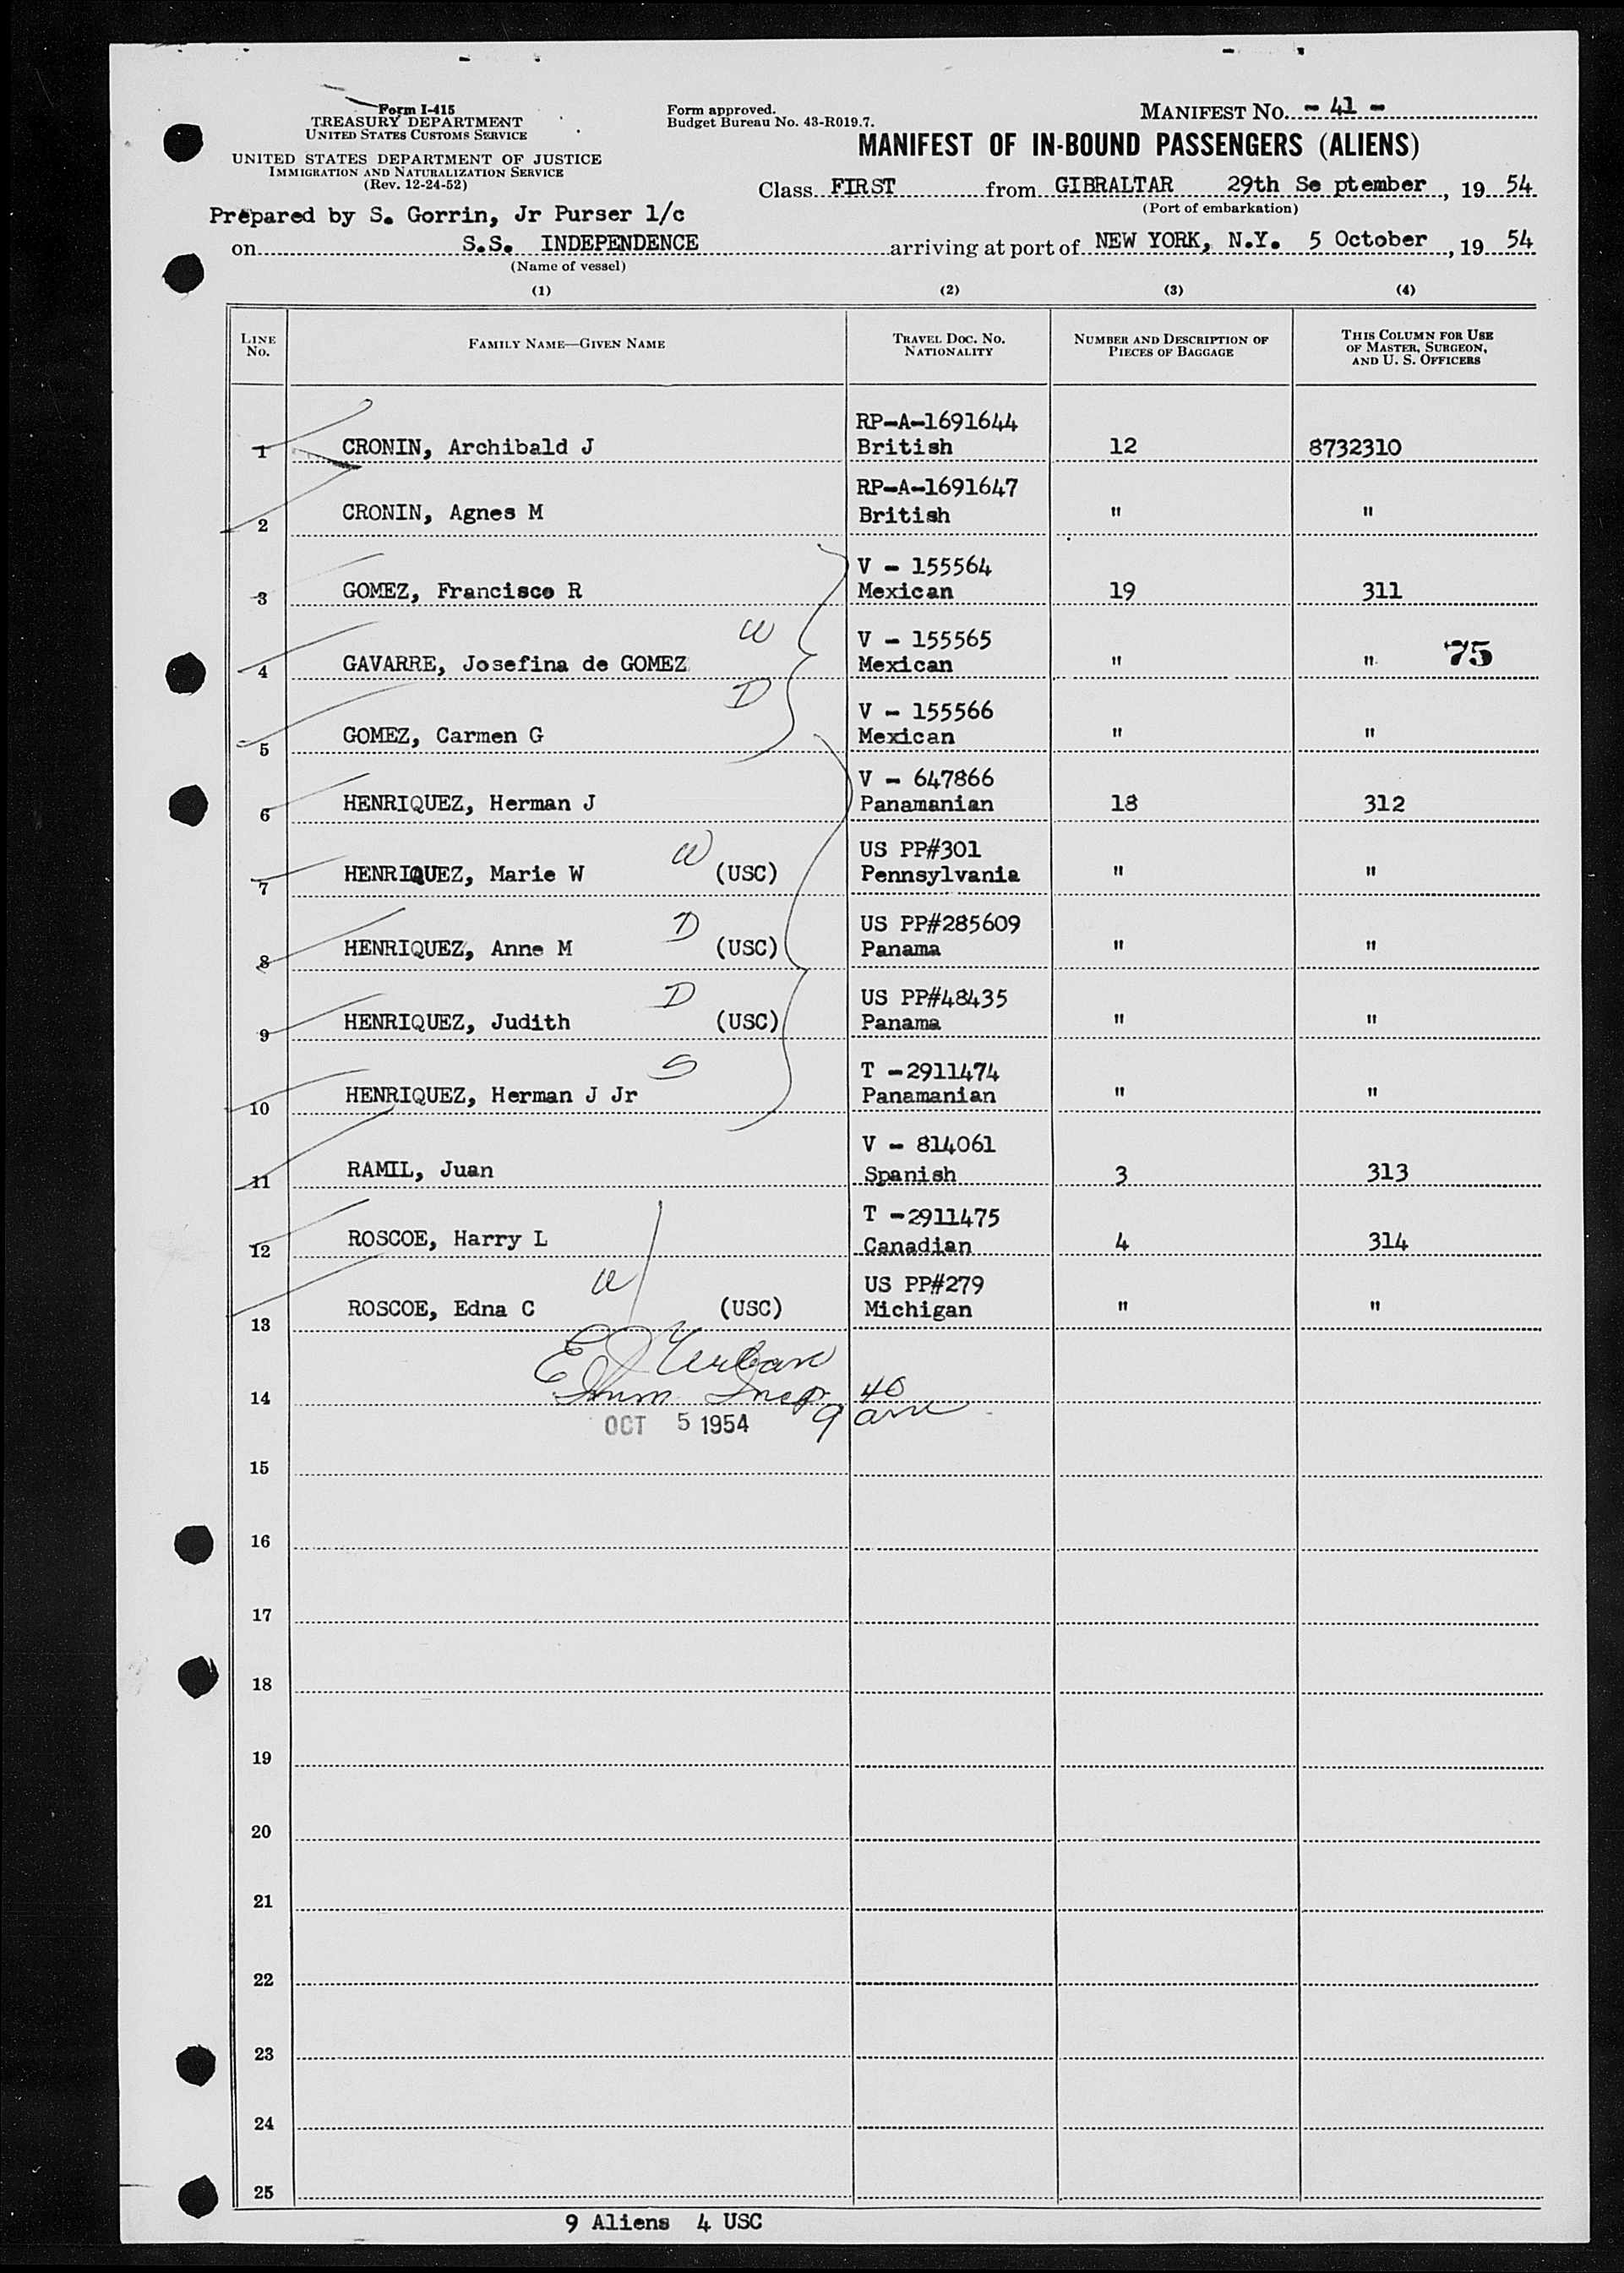 Form I-415
TREASURY DEPARTMENT
UNITED STATES CUSTOMS SERVICE
UNITED STATES DEPARTMENT OF JUSTICE
IMMIGRATION AND NATURALIZATION SERVICE
(Rev. 12-24-52)
Form approved.
Budget Bureau No. 43-R019.7.
MANIFEST NO. - 41 -
MANIFEST OF IN-BOUND PASSENGERS (ALIENS)
Class FIRST from GIBRALTAR 29th Se ptember, 19 54
(Port of embarkation)
Prepared by S. Gorrin, Jr Purser 1/c
on S.S. INDEPENDENCE arriving at port of NEW YORK, N.Y. 5 October, 19 54
(Name of vessel)
(1) (2) (3) (4)
LINE NO. FAMILY NAME—GIVEN NAME TRAVEL DOC. NO. NATIONALITY NUMBER AND DESCRIPTION OF PIECES OF BAGGAGE THIS COLUMN FOR USE OF MASTER, SURGEON, AND U. S. OFFICERS
RP-A-1691644
1 CRONIN, Archibald J British 12 8732310
RP-A-1691647
2 CRONIN, Agnes M British " "
V - 155564
3 GOMEZ, Francisco R Mexican 19 311
W V - 155565
4 GAVARRE, Josefina de GOMEZ Mexican " " 75
D V - 155566
5 GOMEZ, Carmen G Mexican " "
V - 647866
6 HENRIQUEZ, Herman J Panamanian 18 312
W US PP#301
7 HENRIQUEZ, Marie W (USC) Pennsylvania " "
D US PP#285609
8 HENRIQUEZ, Anne M (USC) Panama " "
D US PP#48435
9 HENRIQUEZ, Judith (USC) Panama " "
S T -2911474
10 HENRIQUEZ, Herman J Jr Panamanian " "
V - 814061
11 RAMIL, Juan Spanish 3 313
T -2911475
12 ROSCOE, Harry L Canadian 4 314
W US PP#279
13 ROSCOE, Edna C (USC) Michigan " "
E J Urban
14 Imm Insp 9 40 am
OCT 5 1954
15
16
17
18
19
20
21
22
23
24
25
9 Aliens 4 USC